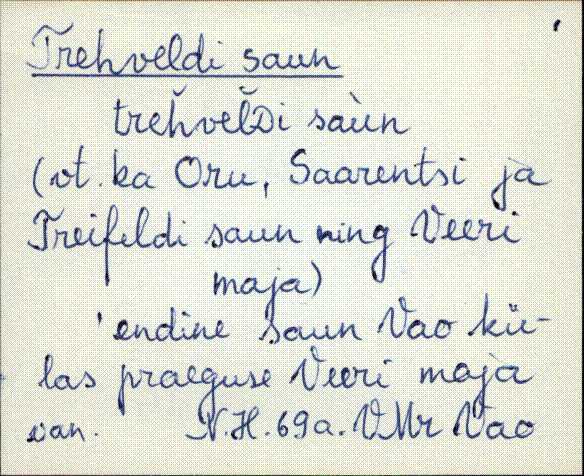 Trehveldi saun
treȟvel̆Di saùn
(vt. ka Oru, Saarentsi ja
Treifeldi saun ning Veeri
maja)
'endine saun Vao kü-
las praeguse Veeri maja
van. N.H. 69a. VMr Vao